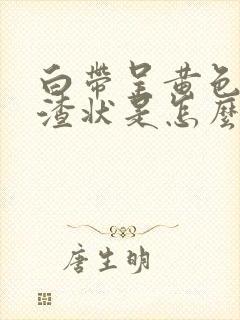 白带呈黄色
渣状是怎么
唐生明